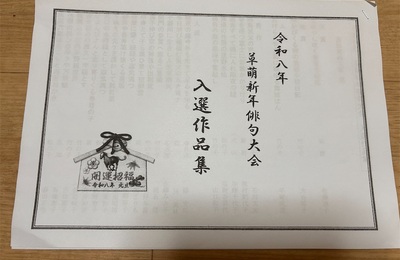 令和八年
草萌新年俳句大会
入選作品集
開運招福
令和八年 元旦